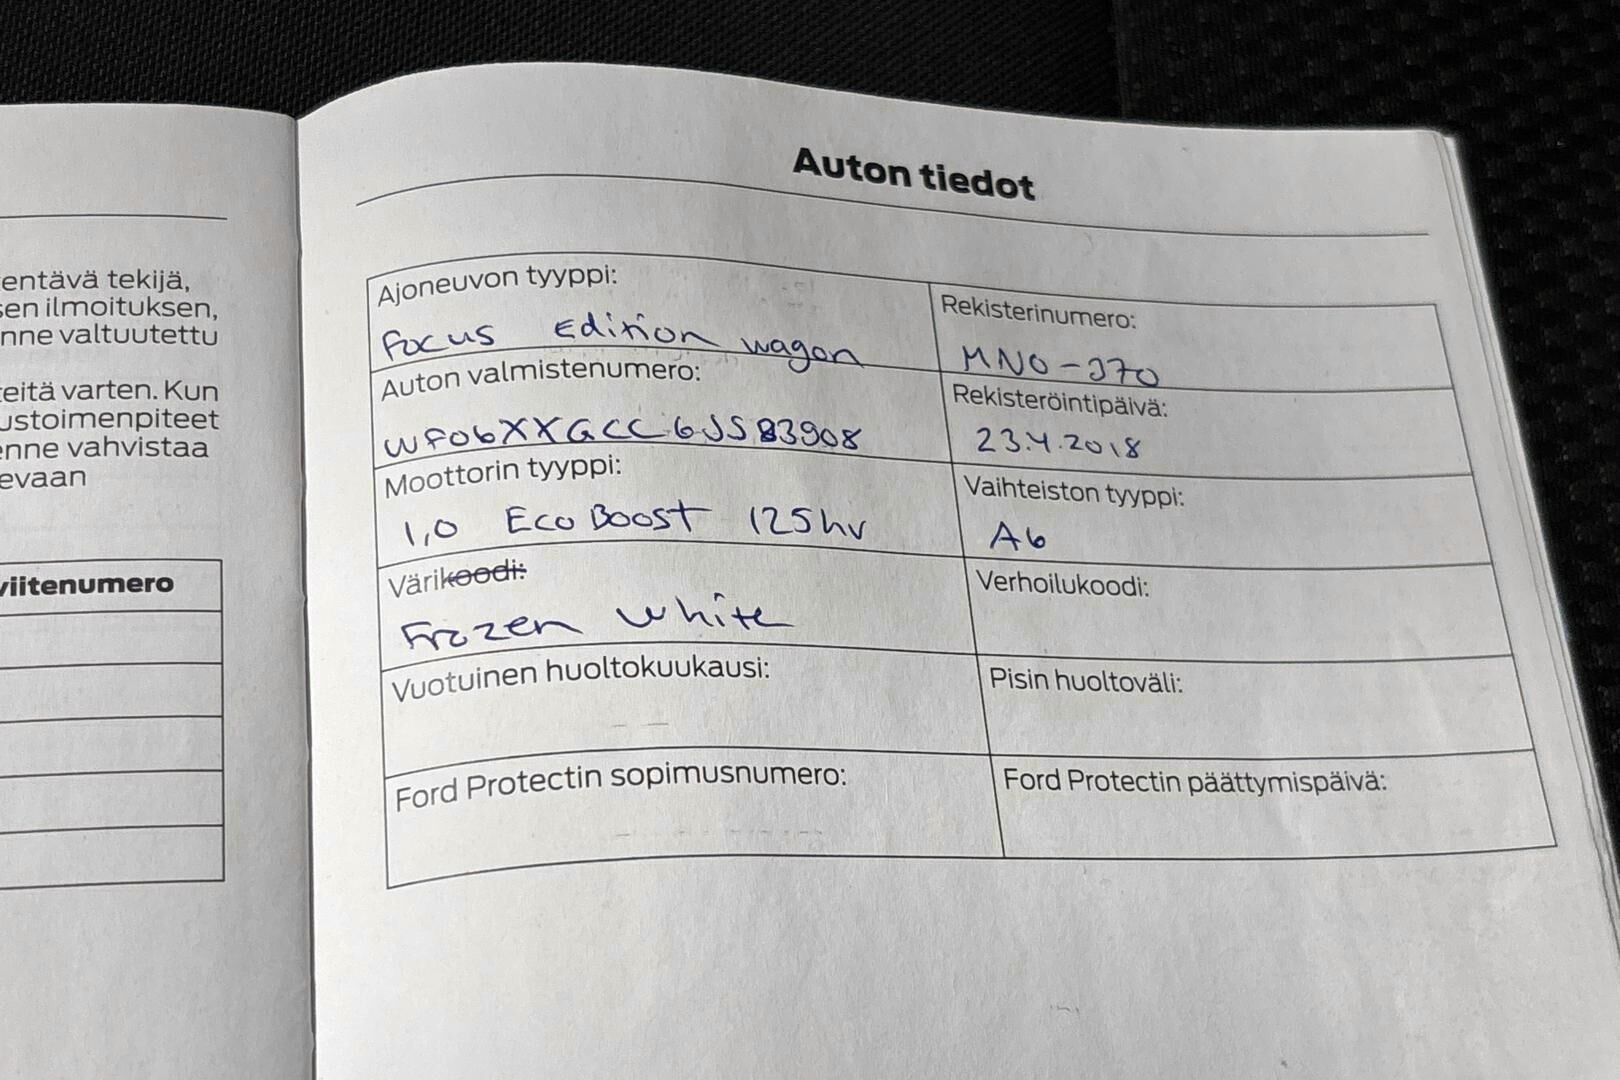 entävä tekijä,
sen ilmoituksen,
nne valtuutettu
teitä varten. Kun
ustoimenpiteet
enne vahvistaa
evaan
viitenumero
Auton tiedot
Ajoneuvon tyyppi:
Focus Edition wagon
Rekisterinumero:
MNO-370
Auton valmistenumero:
WF06XXGCC6JS83908
Rekisteröintipäivä:
23.4.2018
Moottorin tyyppi:
1,0 EcoBoost 125hv
Vaihteiston tyyppi:
A6
Värikoodi:
Frozen White
Verhoilukoodi:
Vuotuinen huoltokuukausi:
Pisin huoltoväli:
Ford Protectin sopimusnumero:
Ford Protectin päättymispäivä: